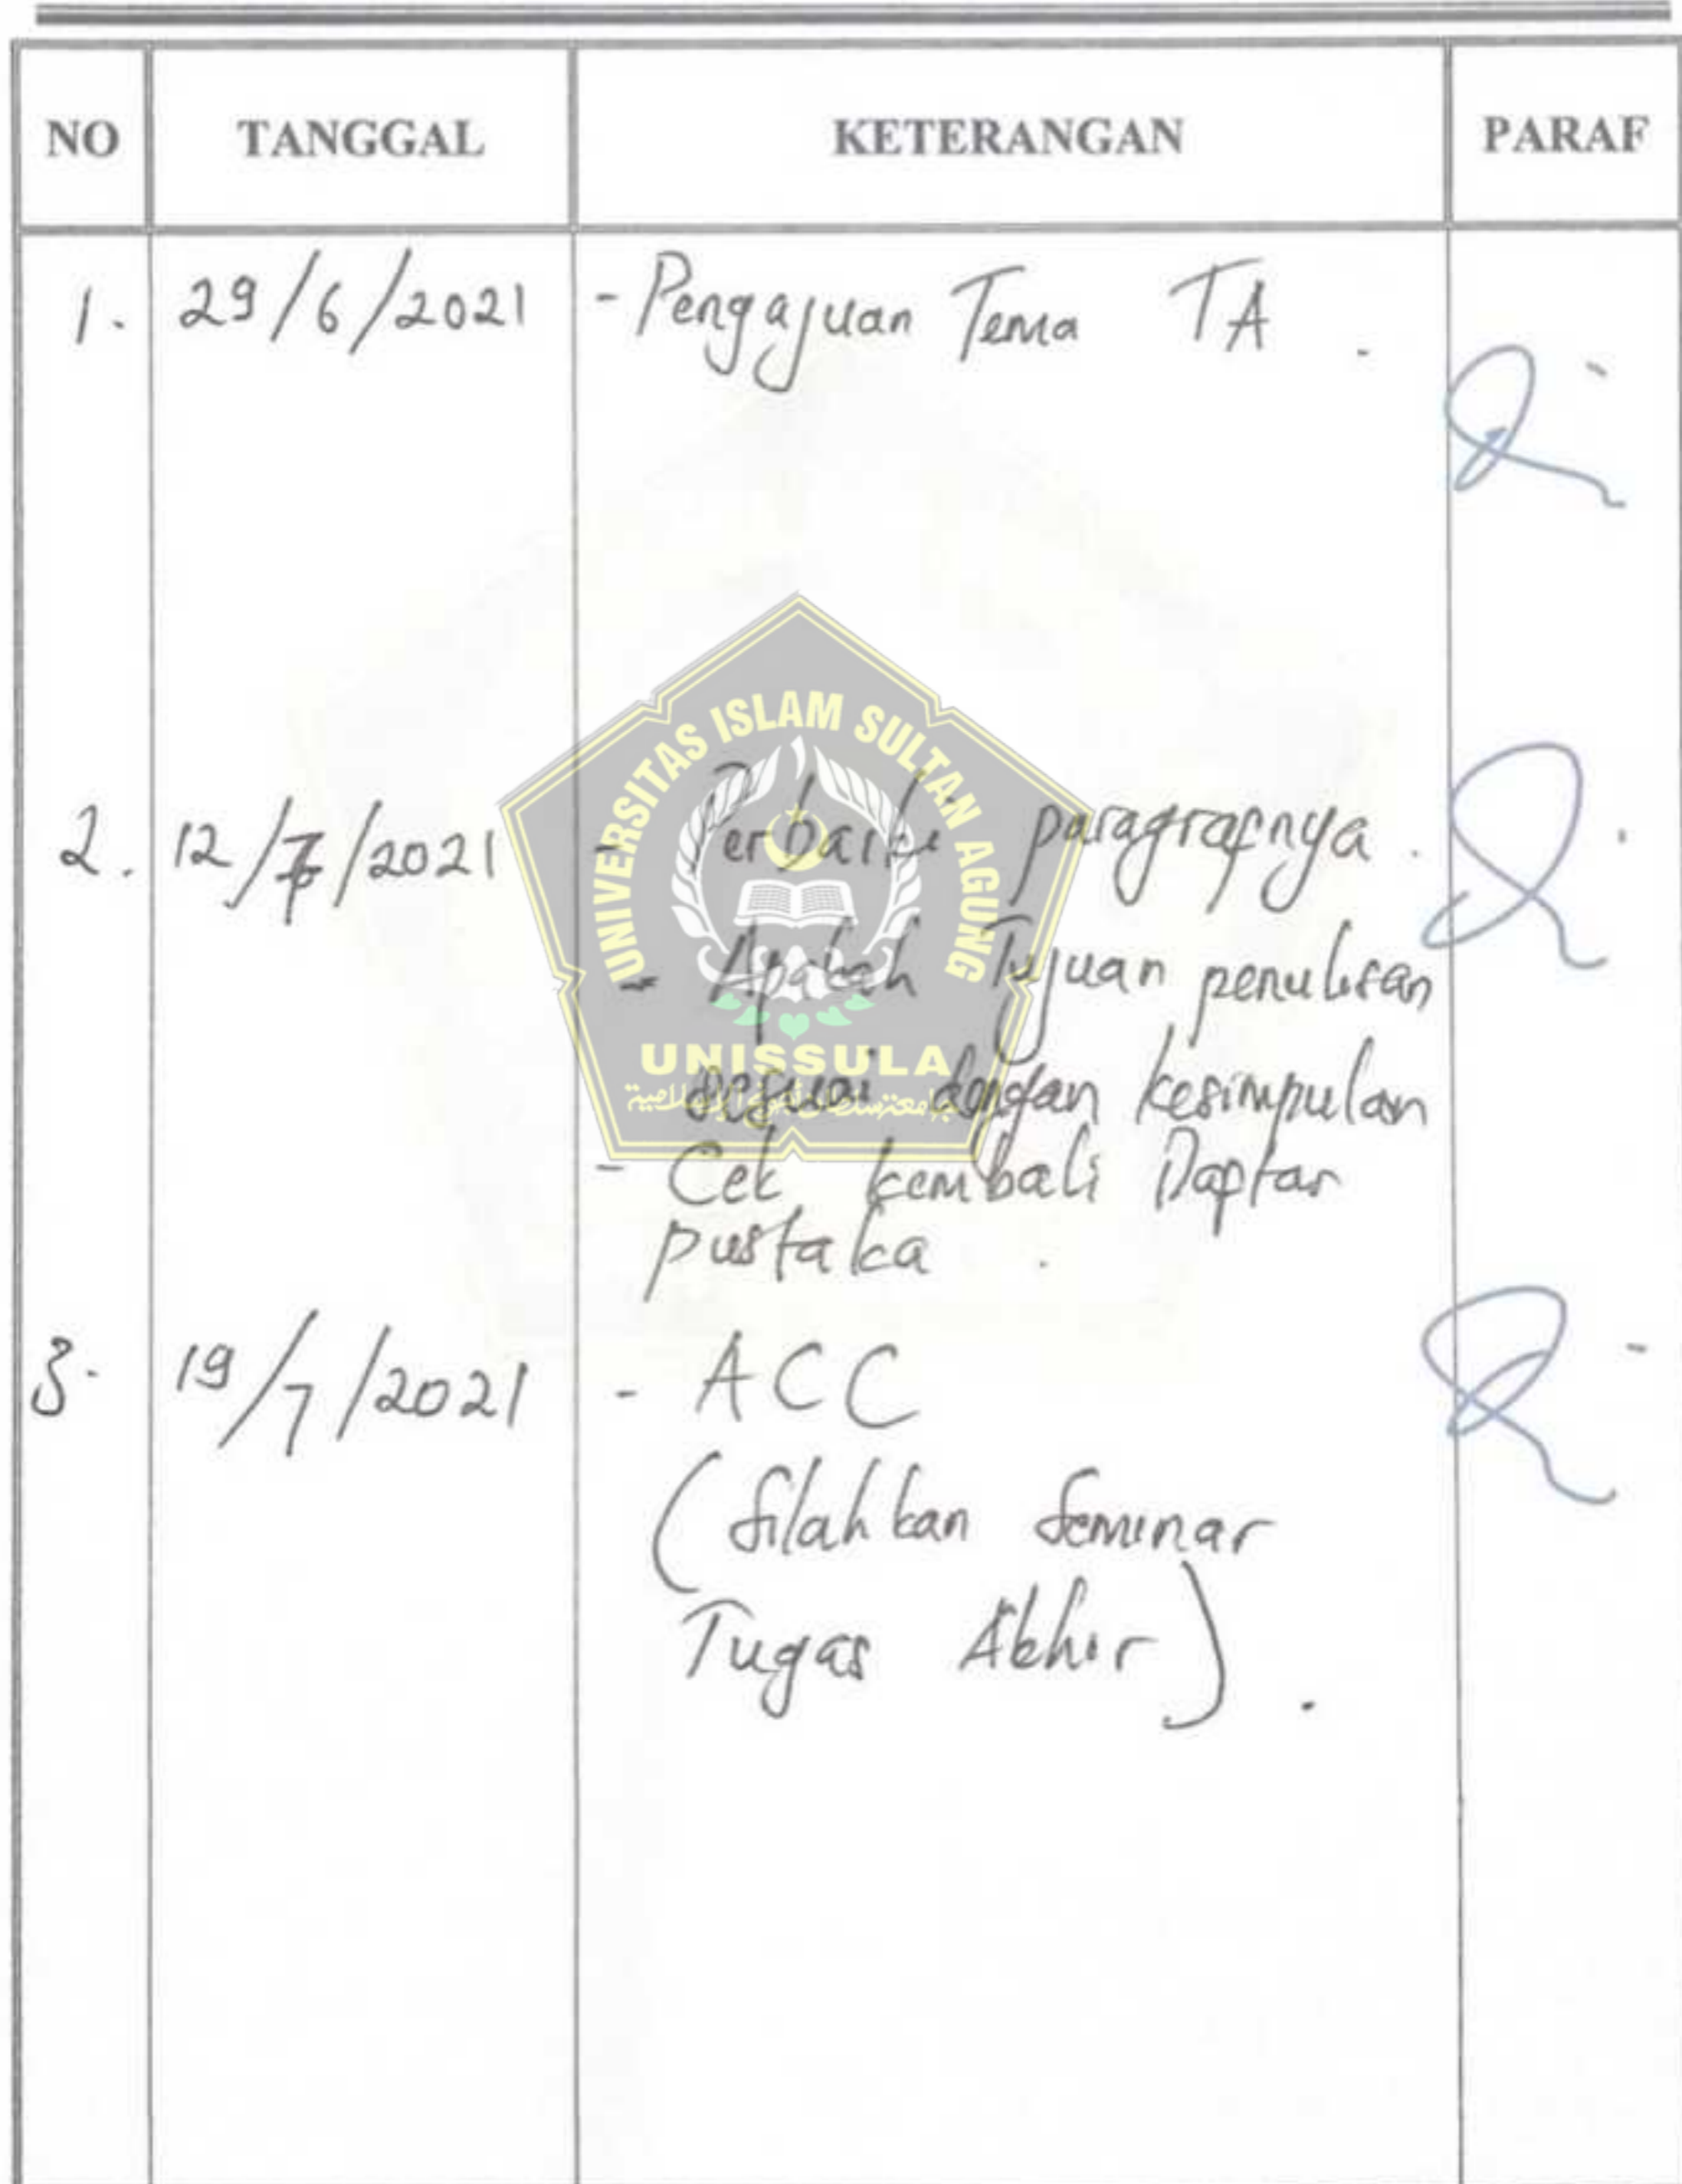 NO TANGGAL KETERANGAN PARAF
1. 29/6/2021 - Pengajuan Tema TA .
2. 12/7/2021 - Perbaiki paragrafnya .
- Apakah Tujuan penulisan
sesuai dengan kesimpulan
- Cek kembali Daptar
pustaka .
3. 19/7/2021 - ACC
(Silahkan Seminar
Tugas Akhir) .
UNIVERSITAS ISLAM SULTAN AGUNG
UNISSULA
جامعة سلطان أجونج الإسلامية